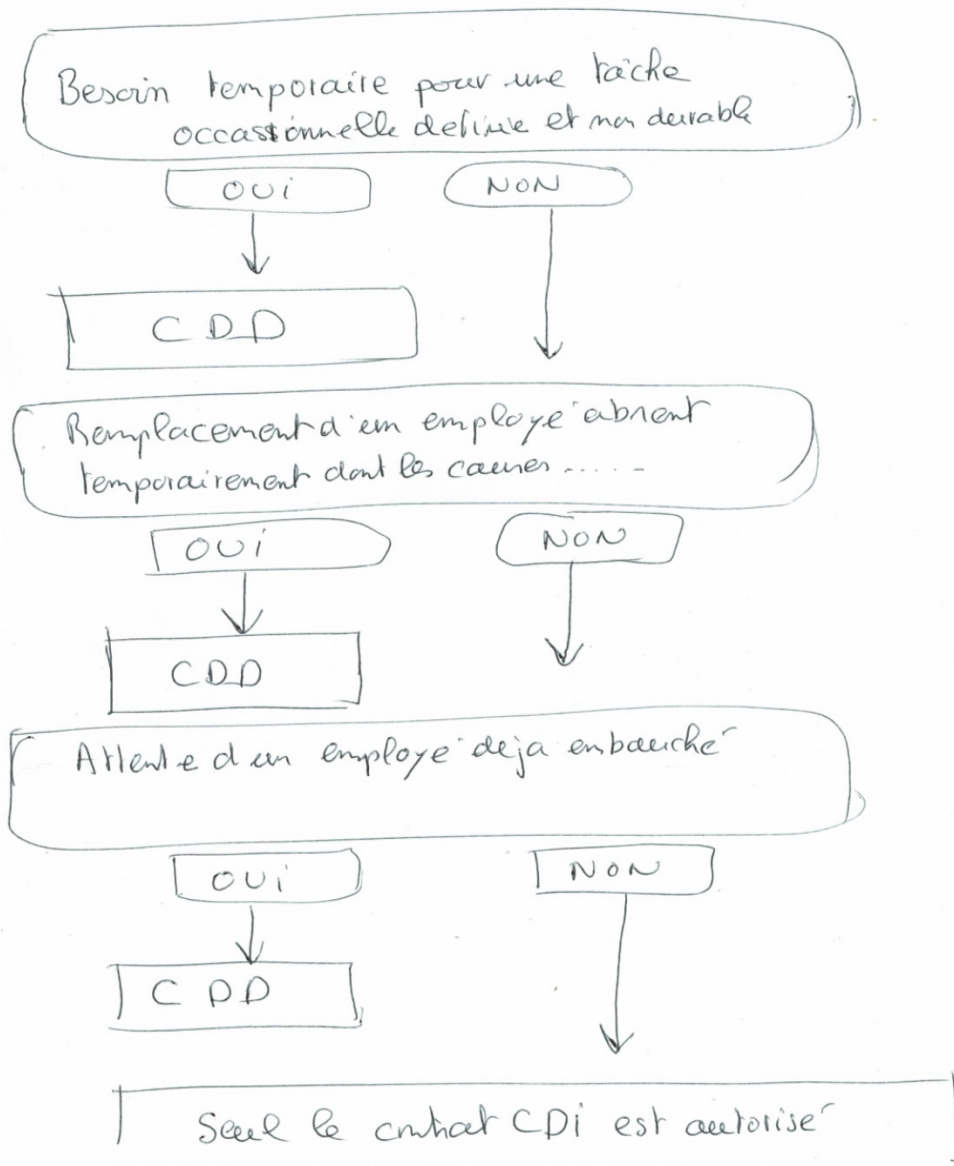 Besoin temporaire pour une tâche
occassionnelle definie et non durable
OUi
NON
CDD
Remplacement d'un employé absent
temporairement dont les causes .....
OUi
NON
CDD
Attente d'un employé deja embauché
OUi
NON
CDD
Seul le contrat CDi est autorisé